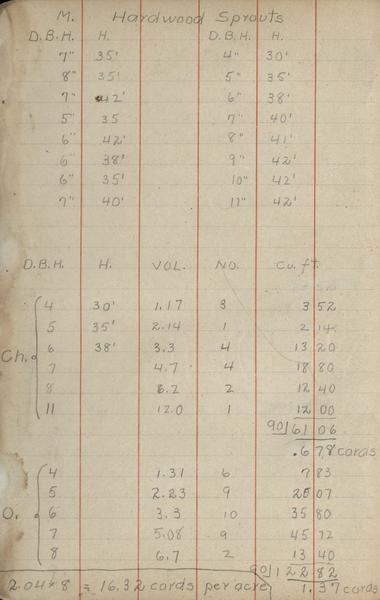 M. Hardwood Sprouts
D.B.H. H. D.B.H. H.
7" 35' 4" 30'
8" 35' 5" 35'
7" 42' 6" 38'
5" 35 7" 40'
6" 42' 8" 41'
6" 38' 9" 42'
6" 35' 10" 42'
7" 40' 11" 42'
D.B.H. H. VOL. NO. Cu. ft.
4 30' 1.17 3 3 52
5 35' 2.14 1 2 14
Ch. 6 38' 3.3 4 13 20
7 4.7 4 18 80
8 6.2 2 12 40
11 12.0 1 12 00
90)61 06
.678 cords
4 1.31 6 7 83
5 2.23 9 20 07
O. 6 3.3 10 35 80
7 5.08 9 45 72
8 6.7 2 13 40
90)122 82
2.04 x 8 = 16.32 cords per acre 1.37 cords